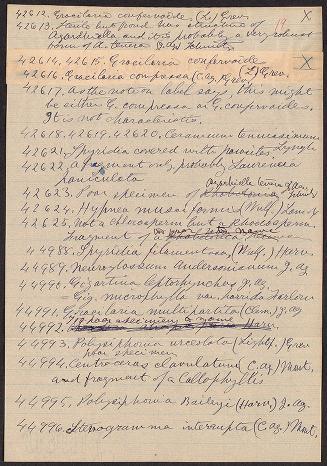 42612. Gracilaria confervoides, (L) Grev. X
42613, Fruits but pond has structure of
Agardhiella and it is probably a very robust
form of A. tenera (J. Ag) Schmitz
42614, 42615. Gracilaria confervoides X
42616. Gracilaria compressa (C. Ag) Grev. (L) Grev.
42617. As the note on label says, this might
be either G. compressa or G. confervoides.
It is not characteristic.
42618. 42619. 42620. Ceramium tenuissimum
Lyngb
42621. Spyridia covered with parasites.
42622 A fragment only, probably Laurencia
paniculata
42623. Poor specimen Agardhiella tenera J. Ag Schmitz
42624. Hypnea musciformis (Wulf.) Lam'x
42625. Not a Chlorosperm but a Rhodosperm.
Fragment of a
44988. Spyridia filamentosa, (Wulf.) Harv.
44989. Neuroglossum Andersonianum J. Ag
44990. Gigartina leptorhynchos J. Ag.
= Gig. microphylla var. horrida Farlow
44991. Gracilaria multipartita (Clem.) J. Ag
44992. Harv.
44993. Polysiphonia urceolata (Lightf.) Grev
poor specimen
44994. Centroceras clavulatum (C. Ag) Mont.
and fragment of a Callophyllis
44995. Polysiphonia Baileyi (Harv) J. Ag.
44996. Stenogramma interrupta (C. Ag.) Mont.